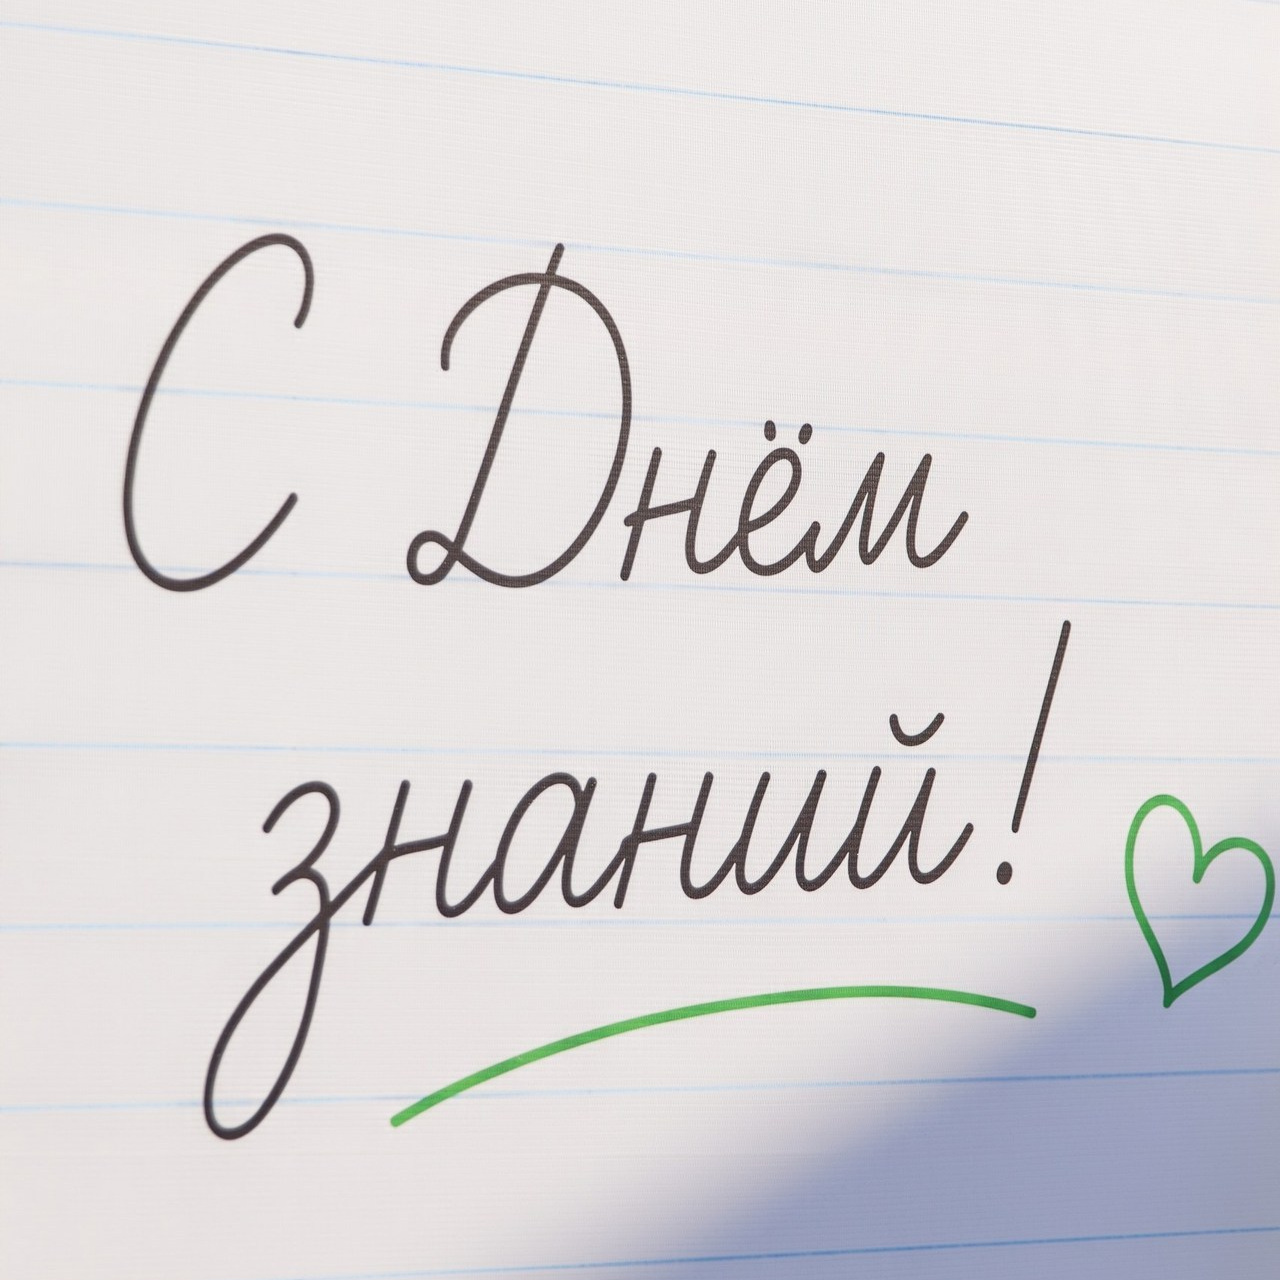 С Днём
знаний!